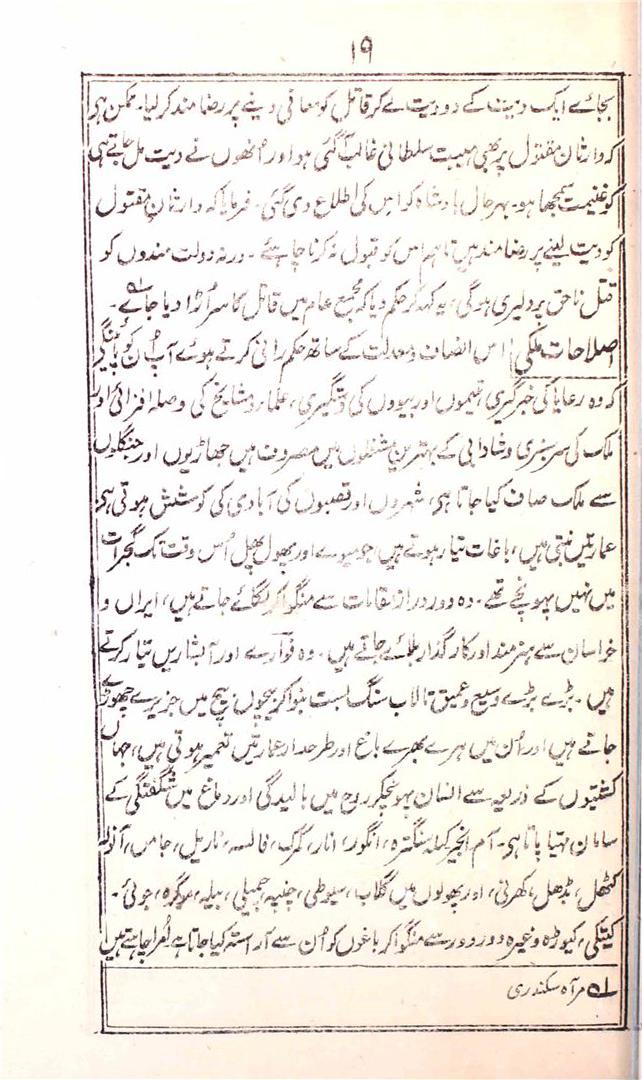 ۱۹
بجائے ایک دیت کے دو دیت لے کر قاتل کو معافی دینے پر رضامند کر لیا۔ ممکن ہی
کہ وارثان مقتول پر بھی ہیبت سلطانی غالب آگئی ہو اور انھوں نے دیت مل جاتے ہی
کو غنیمت سمجھا ہو۔ بہر حال بادشاہ کو اس کی اطلاع دی گئی۔ فرمایا کہ وارثانِ مقتول
کو دیت لینے پر رضامند ہیں تاہم اس کو قبول نہ کرنا چاہئے۔ ورنہ دولت مندوں کو
قتل ناحق پر دلیری ہوگی، یہ کہہ کر حکم دیا کہ مجمع عام میں قاتل کا سر اُڑا دیا جائے۔ ؎۱
اصلاحات ملکی اس انصاف و معدلت کے ساتھ حکم رانی کرتے ہوئے آپ اُن کو پائینگے
کہ وہ رعایا کی خبر گیری یتیموں اور بیووں کی دستگیری، علماء و مشایخ کی حوصلہ افزائی اور
ملک کی سرسبزی و شادابی کے بہترین مشغلوں میں مصروف ہیں جھاڑیوں اور جنگلوں
سے ملک صاف کیا جاتا ہی، شہروں اور قصبوں کی آبادی کی کوشش ہوتی ہی
عمارتیں بنتی ہیں، باغات تیار ہوتے ہیں جو میوے اور پھول پھل اُس وقت تک گجرات
میں نہیں پہونچے تھے۔ وہ دور دراز مقامات سے منگوا کر لگائے جاتے ہیں، ایران و
خراسان سے ہنرمند اور کارگذار بلائے جاتے ہیں۔ وہ فوّارے اور آبشاریں تیار کرتے
ہیں۔ بڑے بڑے وسیع و عمیق تالاب سنگ بست بنوا کر بیچوں بیچ میں جزیرے چھوڑے
جاتے ہیں اور اُن میں ہرے بھرے باغ اور طرحدار عمارتیں تعمیر ہوتی ہیں، جہاں
کشتیوں کے ذریعہ سے انسان پہونچکر روح میں بالیدگی اور دماغ میں شگفتگی کے
سامان مہیا پاتا ہی۔ آم انجیر کیلہ سنگترہ، انگور، انار، کمرک، فالسہ، ناریل، جامن، آنولہ
کٹھل، بڈھل، کھرنی، اور پھولوں میں گلاب، سیوطی، چنپہ چمیلی، بیلہ، موگرہ، جوئی۔
کیتکی، کیوڑہ وغیرہ دور دور سے منگوا کر باغوں کو اُن سے آراستہ کیا جاتا ہے امراچاہتے ہیں
؎۱ مرآہ سکندری